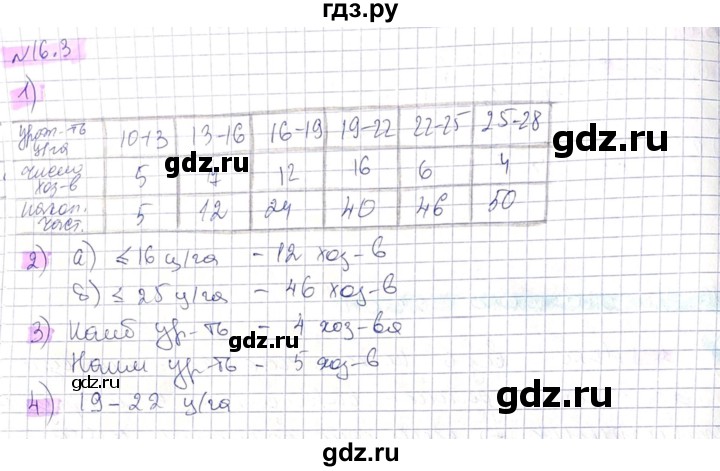 гдз.ру
№16.3
1)
урож-ть ц/га 10-13 13-16 16-19 19-22 22-25 25-28
число хоз-в 5 7 12 16 6 4
накоп. част. 5 12 24 40 46 50
2) а) ≤ 16 ц/га - 12 хоз-в
б) ≤ 25 ц/га - 46 хоз-в
3) Наиб ур-ть - 4 хоз-вя
gdz.ru
Наим ур-ть - 5 хоз-в
gdz.ru
4) 19-22 ц/га
gdz.ru
gdz.ru